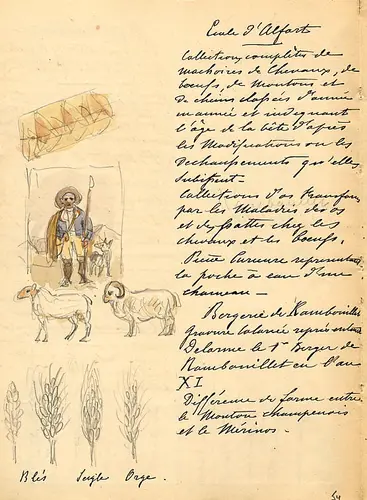 Ecole d'Alfort
Collections complètes de
machoires de Chevaux, de
boeufs, de Moutons et
de chiens classés d'année
en année et indiquant
l'âge de la bête d'après
les Modifications ou les
Dechaussements qu'elles
subissent
Collections d'os transformés
par les Maladies des os
et des pattes chez les
chevaux et les boeufs.
Pièce curieuse représentant
la poche à eau d'un
chameau —
Bergerie de Rambouillet
Gravure coloriée représentant
Delorme le 1er Berger de
Rambouillet en l'an
XI
Différence de forme entre
le Mouton champenois
et le Mérinos. -
Blés Seigle Orge.